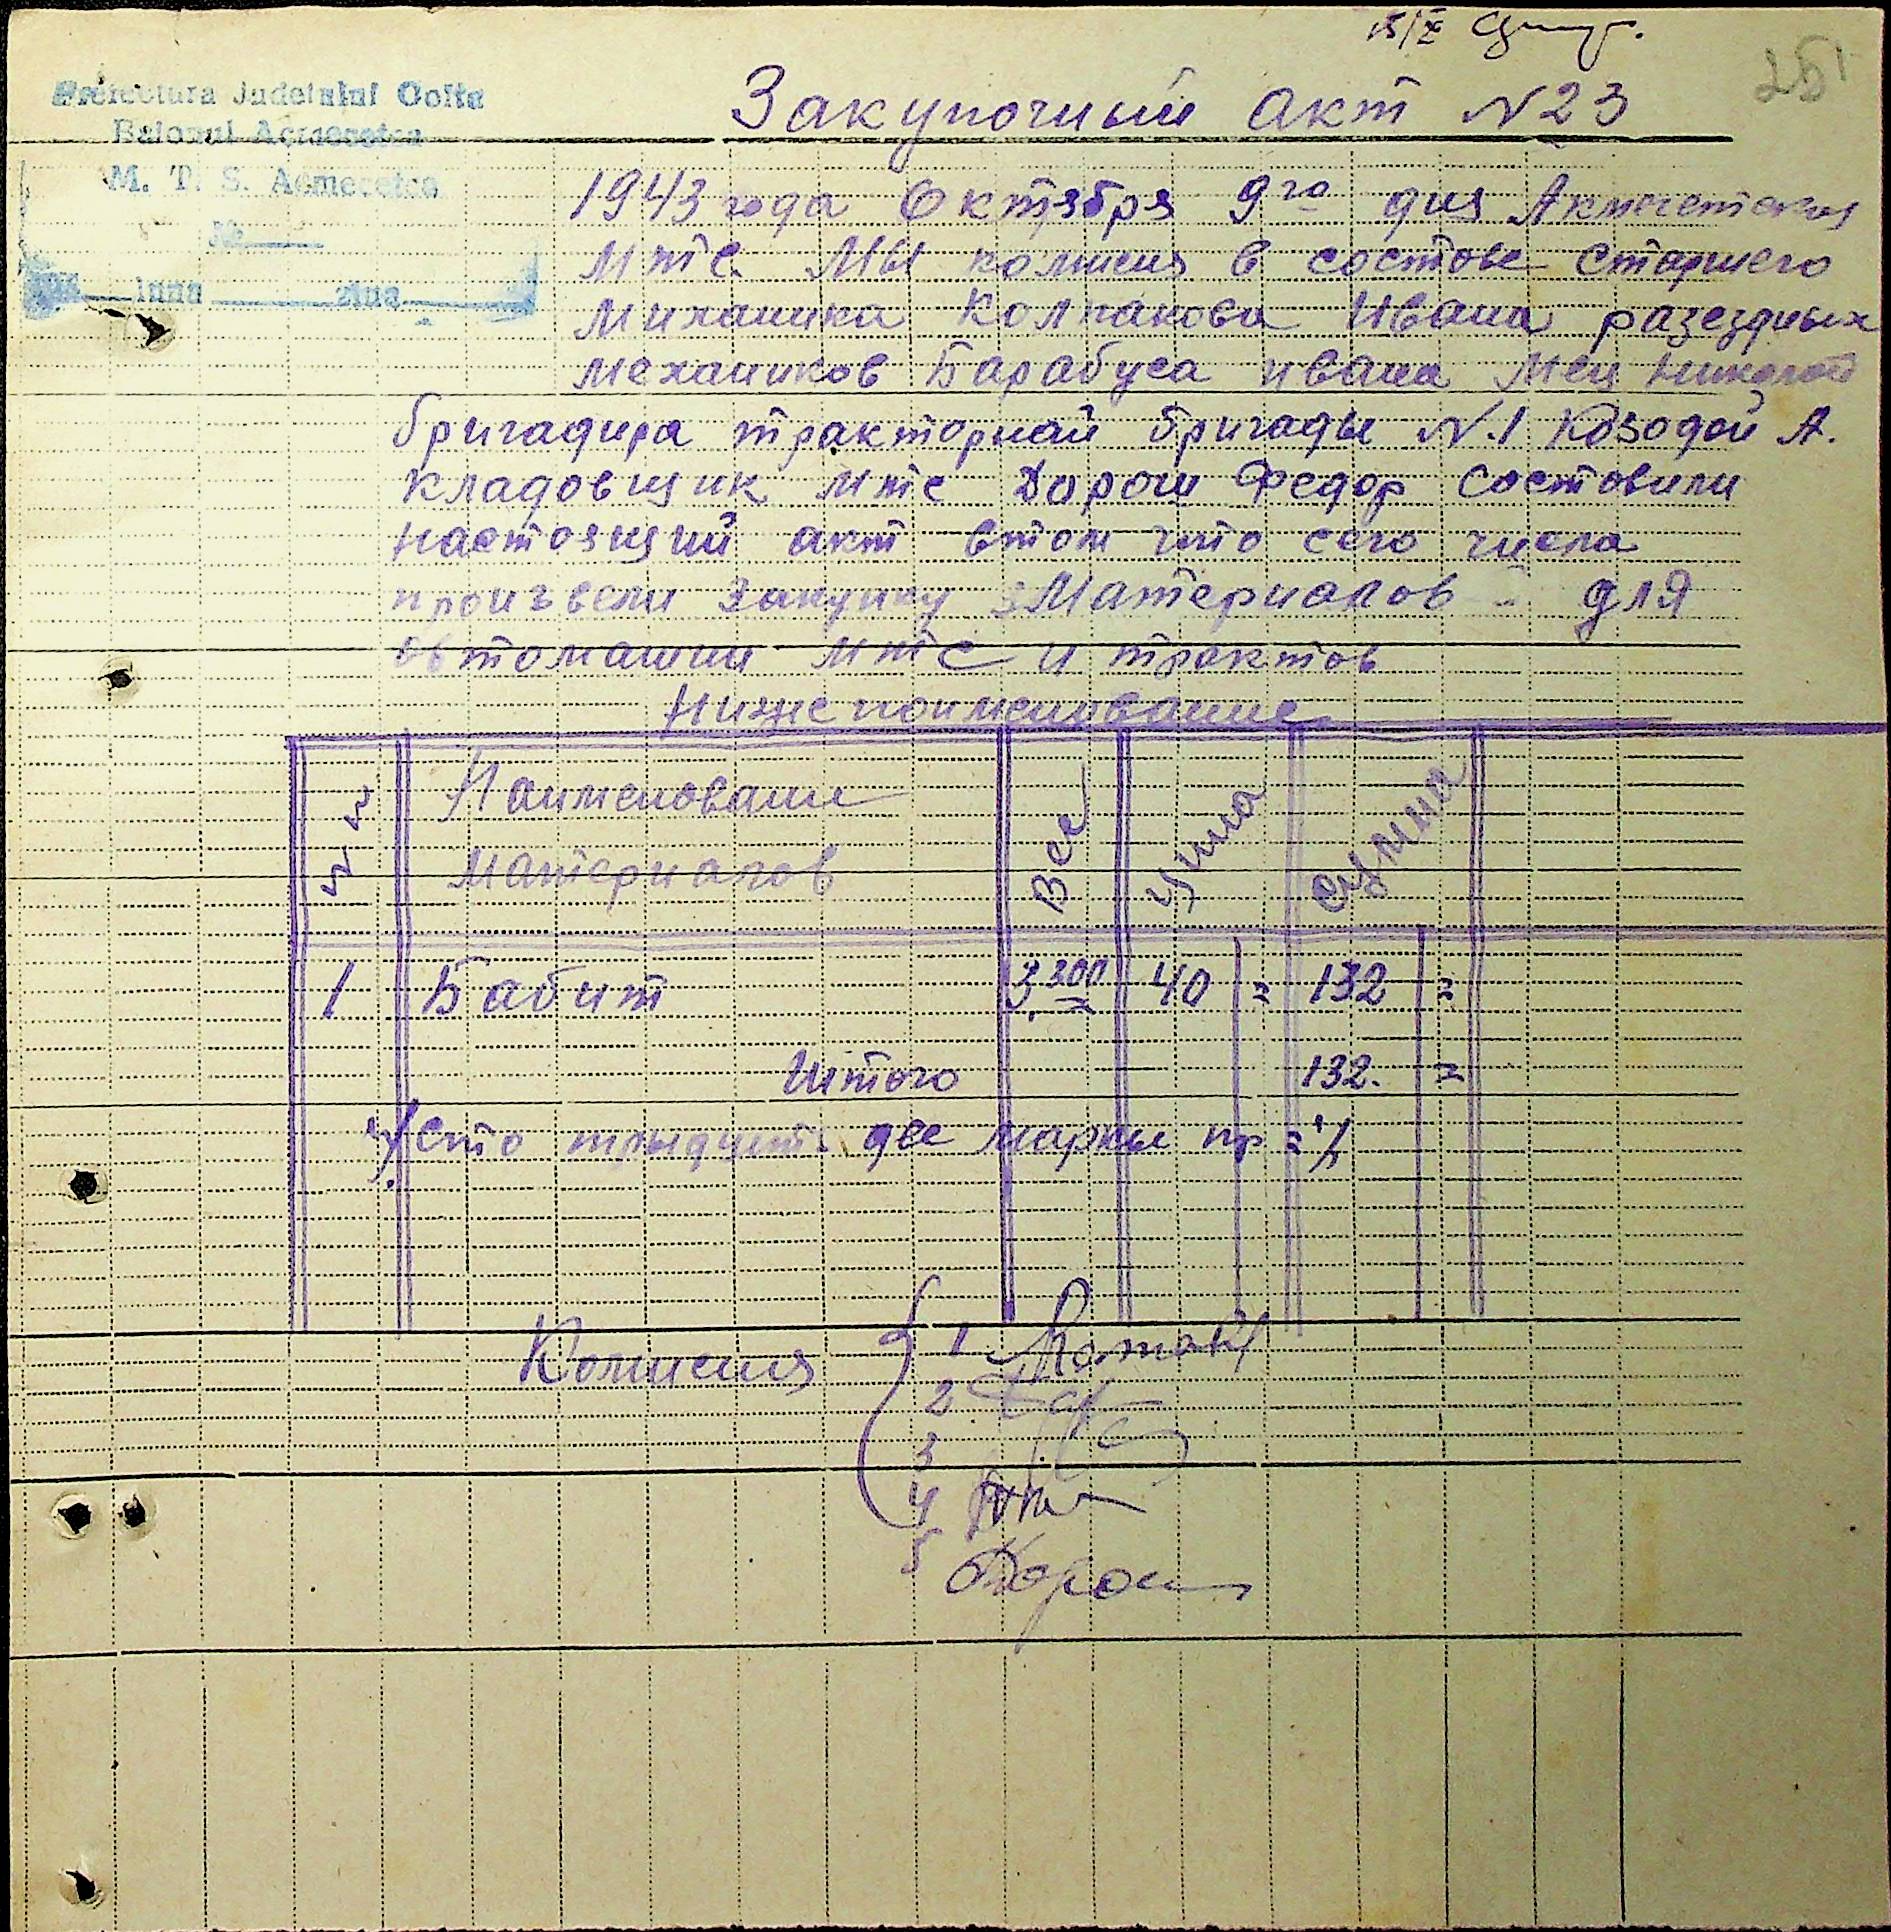 15/X
251
Prefectura Judetului Golta
Raionul Acmecetca
M. T. S. Acmecetca
№
luna ziua
Закупочный акт N 23
1943 года Октября 9го дня Акмечетская
Мтс. Мы комисия в состове старшего
Миханика Колпакова Ивана разездных
механиков Барабуса ивана Мец Николай
бригадира тракторнай бригады N.1 Козодой А.
кладовщик мтс Дорош Федор состовили
настоящий акт втом что сего числа
произвели Закупку Материалов для
овтомашин мтс и трактов
Нижепоименование
N N Наименование Вес цина сумма
материалов
1 Бабит 3.300 40 = 132 =
Итого 132. =
сто трыдцить две марки пф =
Комисия 1
2
3
4
5 Дорош